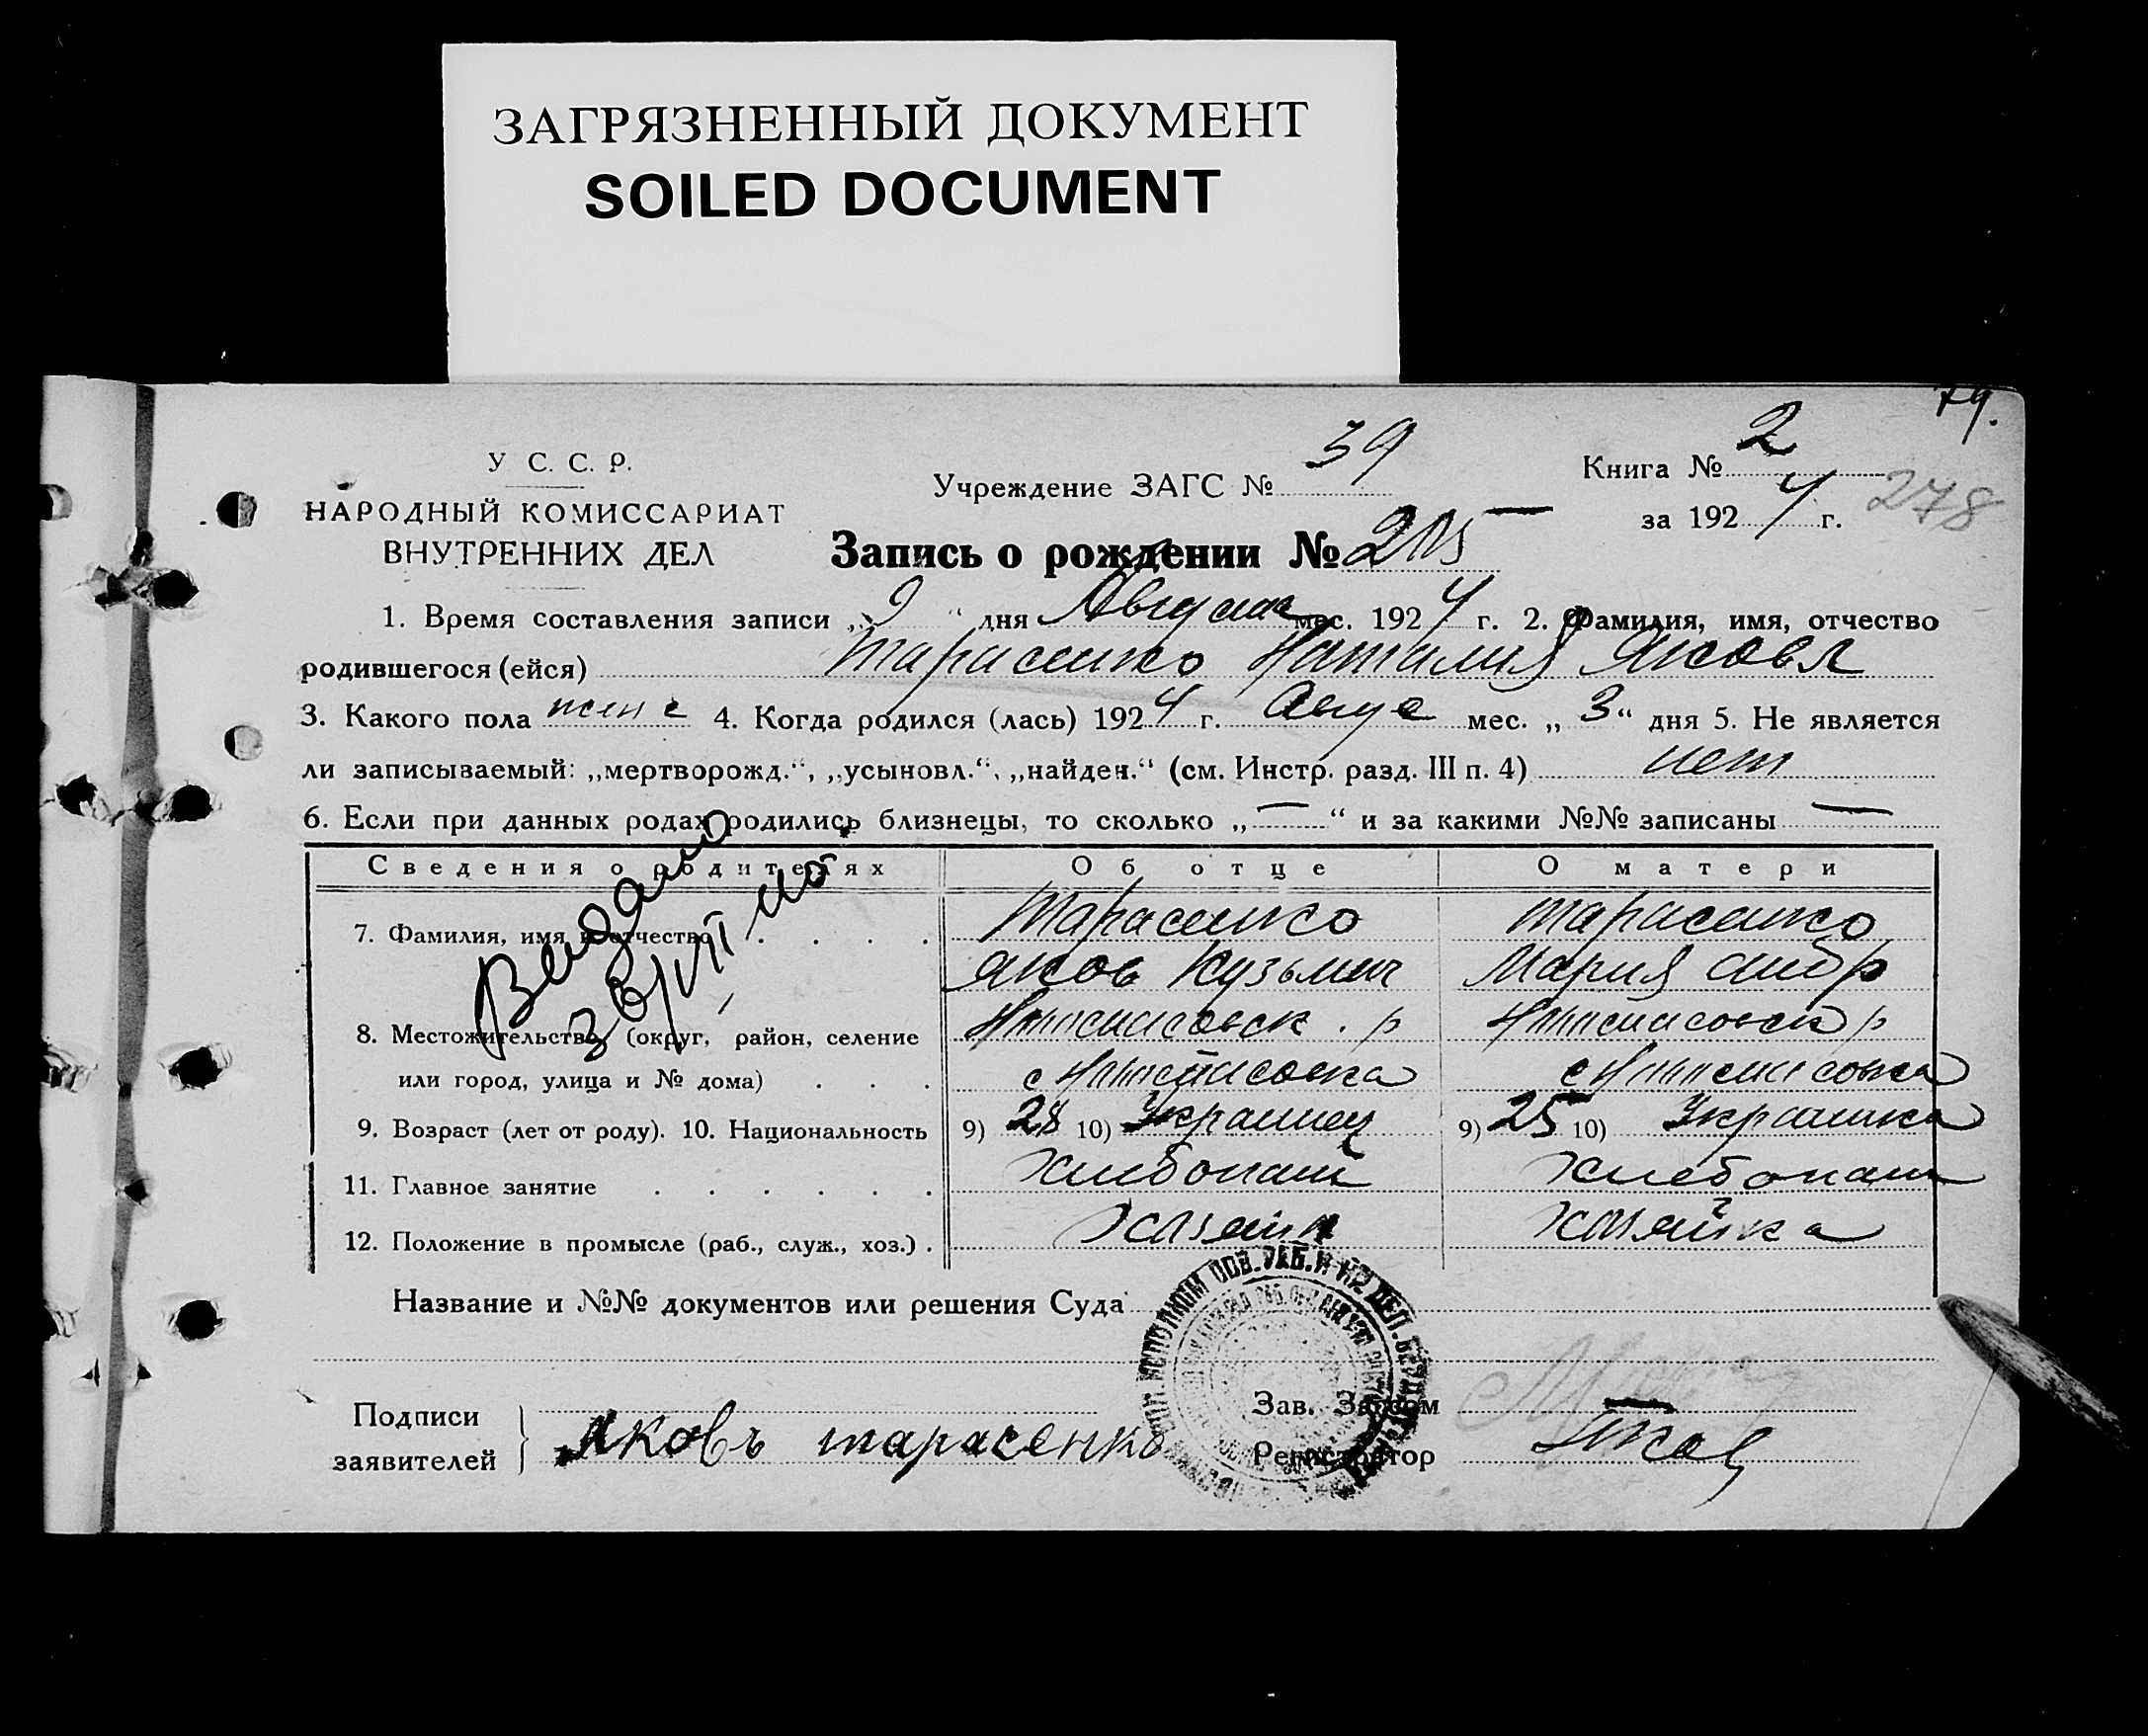 ЗАГРЯЗНЕННЫЙ ДОКУМЕНТ
SOILED DOCUMENT
79.
У С. С. Р.
НАРОДНЫЙ КОМИССАРИАТ
ВНУТРЕННИХ ДЕЛ
Учреждение ЗАГС № 39
Книга № 2
за 1924 г.
278
Запись о рождении № 205
1. Время составления записи „9“ дня Августа мес. 1924 г. 2. Фамилия, имя, отчество
родившегося (ейся) Тарасенко Наталия Яковл
3. Какого пола женс 4. Когда родился (лась) 1924 г. Авгус мес. „3“ дня 5. Не является
ли записываемый: „мертворожд.“, „усыновл.“, „найден.“ (см. Инстр. разд. III п. 4) нет
6. Если при данных родах родились близнецы, то сколько „—“ и за какими №№ записаны —
Сведения о родителях Об отце О матери
7. Фамилия, имя и отчество Тарасенко Тарасенко
Яков Кузьмич Мария Андр
8. Местожительство (округ, район, селение
или город, улица и № дома)
9. Возраст (лет от роду). 10. Национальность 9) 28 10) Украинец 9) 25 10) Украинка
11. Главное занятие Хлебопаш Хлебопаш
12. Положение в промысле (раб., служ., хоз.) Хозяин Хозяйка
Название и №№ документов или решения Суда
Подписи
заявителей
Яковъ тарасенко
Зав. Загсом
Регистратор